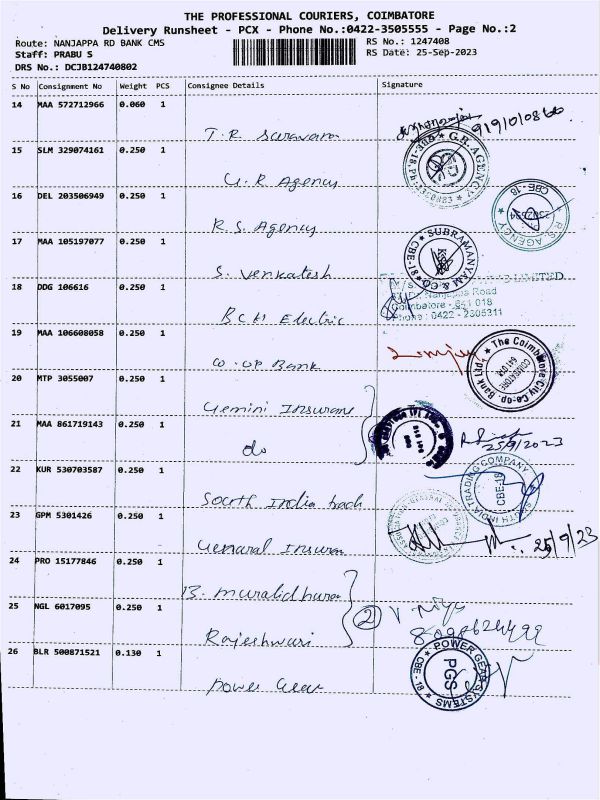 THE PROFESSIONAL COURIERS, COIMBATORE
Delivery Runsheet - PCX - Phone No.:0422-3505555 - Page No.:2
Route: NANJAPPA RD BANK CMS RS No.: 1247408
Staff: PRABU S RS Date: 25-Sep-2023
DRS No.: DCJB124740802
S No Consignment No Weight PCS Consignee Details Signature
14 MAA 572712966 0.060 1
T.R Saravana
15 SLM 329074161 0.250 1
G.R. AGENCY
G.R Agency
16 DEL 203506949 0.250 1
CBE-18
R.S. AGENCY
R.S. Agency
17 MAA 105197077 0.250 1
SUBRAMANYAM & CO
CBE-18
S. Venkatesh
18 DDG 106616 0.250 1
LIMITED
Nanjappa Road
Coimbatore - 641 018
Phone : 0422 - 2305311
B.C.H Electric
19 MAA 106608058 0.250 1
The Coimbatore City Co-op. Bank Ltd.,
COIMBATORE
641 018
co-op Bank
20 MTP 3055007 0.250 1
Gemini Insuran
21 MAA 861719143 0.250 1
25/9/2023
do
22 KUR 530703587 0.250 1
SOUTH INDIA TRADING COMPANY
CBE-18
South India trad
23 GPM 5301426 0.250 1
25/9/23
General Insuran
24 PRO 15177846 0.250 1
B. Muralidhara
25 NGL 6017095 0.250 1
2
Rajeshwari
26 BLR 500871521 0.130 1
POWER GEAR SYSTEMS
PGS
CBE - 18
Power Gear